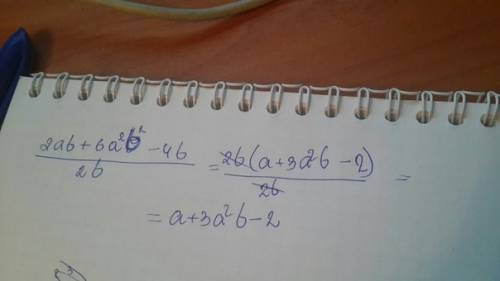 (2ab + 6a²b² - 4b)/(2b) = (2b(a+3a²b-2))/(2b) =
= a+3a²b-2